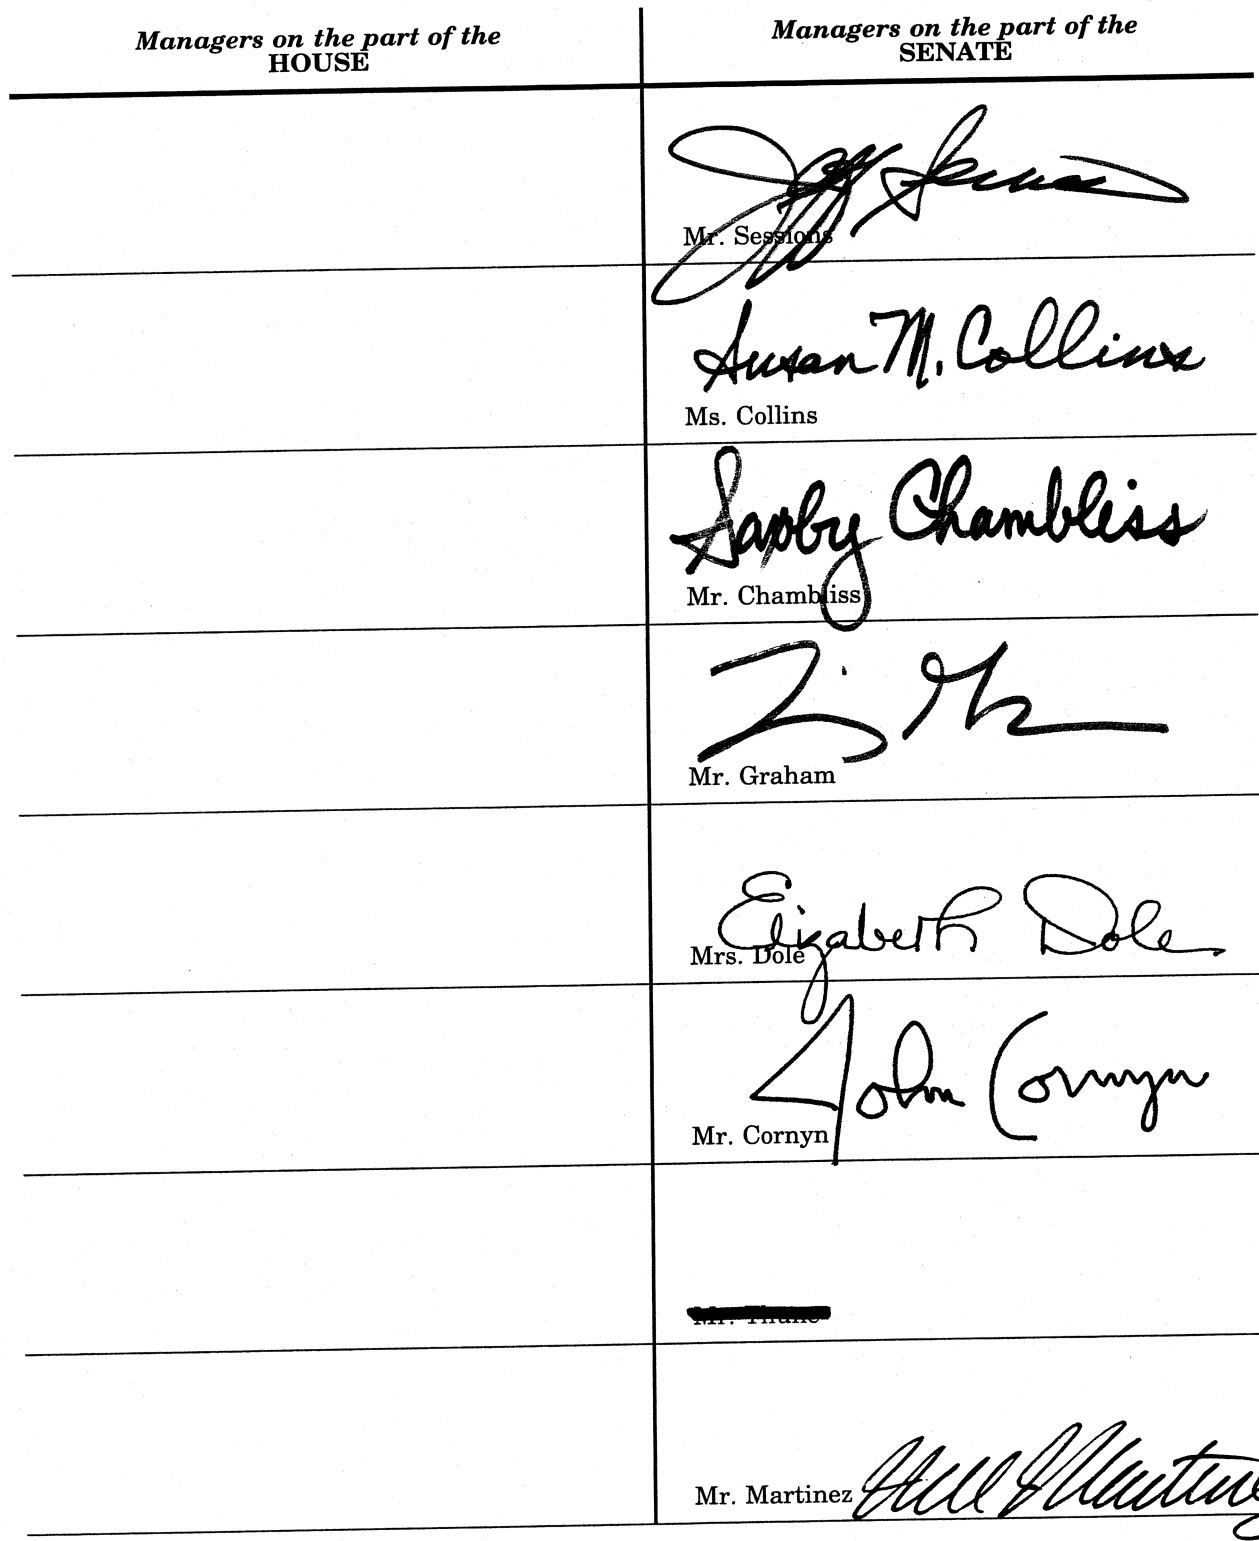 Managers on the part of the
HOUSE
Managers on the part of the
SENATE
Jeff Sessions
Mr. Sessions
Susan M. Collins
Ms. Collins
Saxby Chambliss
Mr. Chambliss
Mr. Graham
Elizabeth Dole
Mrs. Dole
John Cornyn
Mr. Cornyn
Mr. Thune
Mr. Martinez Mel Martinez